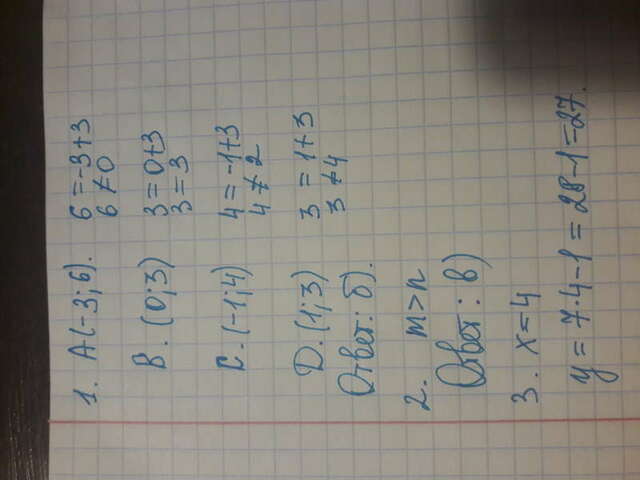 1. A(-3;6). 6=-3+3
6≠0
B.(0;3) 3=0+3
3=3
C.(-1;4) 4=-1+3
4≠2
D.(1;3) 3=1+3
3≠4
Ответ: б).
2. m>n
Ответ: в)
3. x=4
y=7·4-1=28-1=27.